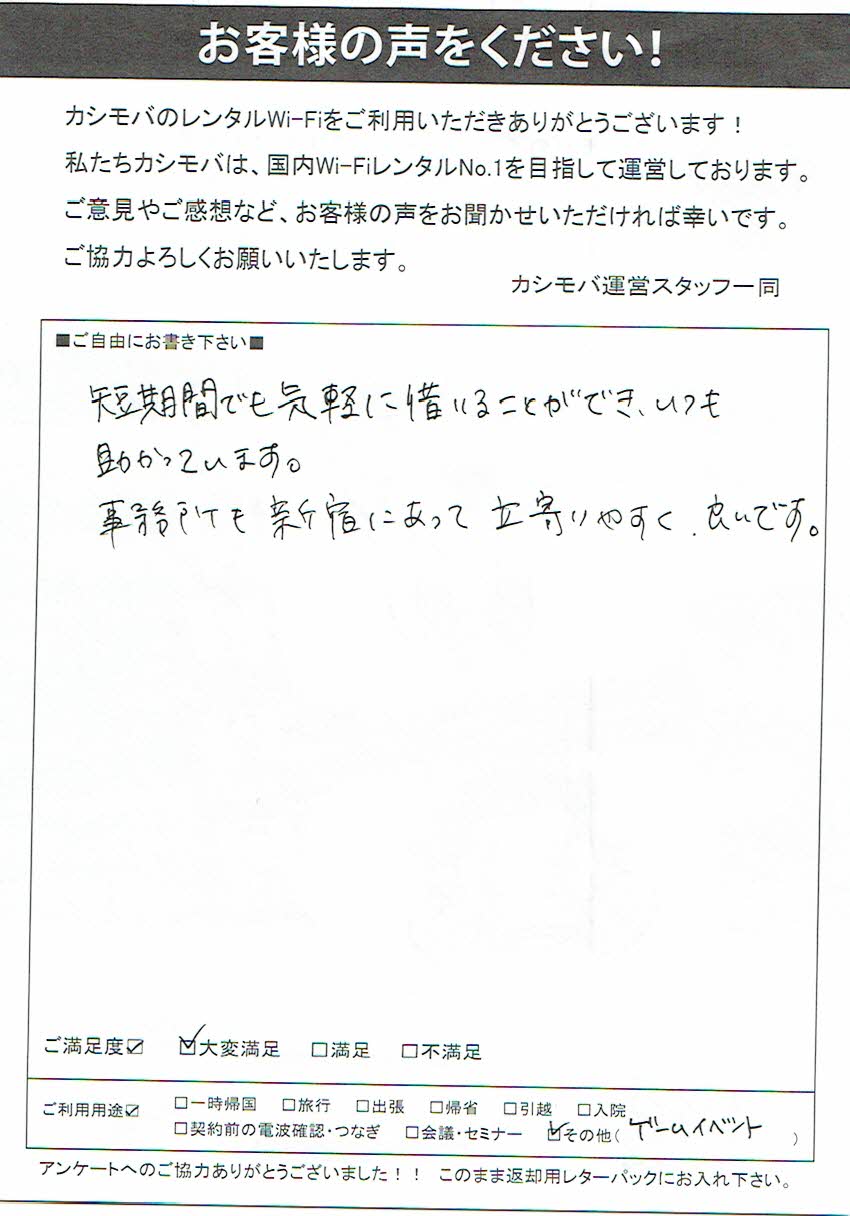 お客様の声をください！
カシモバのレンタルWi-Fiをご利用いただきありがとうございます！
私たちカシモバは、国内Wi-FiレンタルNo.1を目指して運営しております。
ご意見やご感想など、お客様の声をお聞かせいただければ幸いです。
ご協力よろしくお願いいたします。
カシモバ運営スタッフ一同
■ご自由にお書き下さい■
短期間でも気軽に借りることができ、いつも
助かっています。
事務所も新宿にあって立寄りやすく、良いです。
ご満足度☑ ☑大変満足 □満足 □不満足
ご利用用途☑ □一時帰国 □旅行 □出張 □帰省 □引越 □入院
□契約前の電波確認・つなぎ □会議・セミナー ☑その他(ゲームイベント)
アンケートへのご協力ありがとうございました！！ このまま返却用レターパックにお入れ下さい。